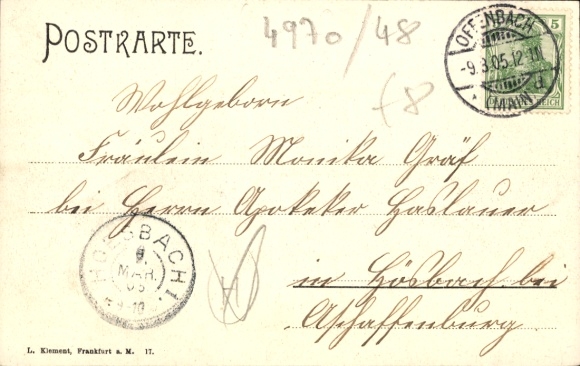 POSTKARTE.
4970/48
f8
OFFENBACH
-9.3.05.12-1N
(MAIN) d
5
REICH
Wohlgeborn
Fräulein Monika Gräf
bei Herrn Apoteker Haslauer
in Hösbach bei
Aschaffenburg.
HOESBACH I.
9.
MÄR.
05
H
L. Klement, Frankfurt a. M. 17.